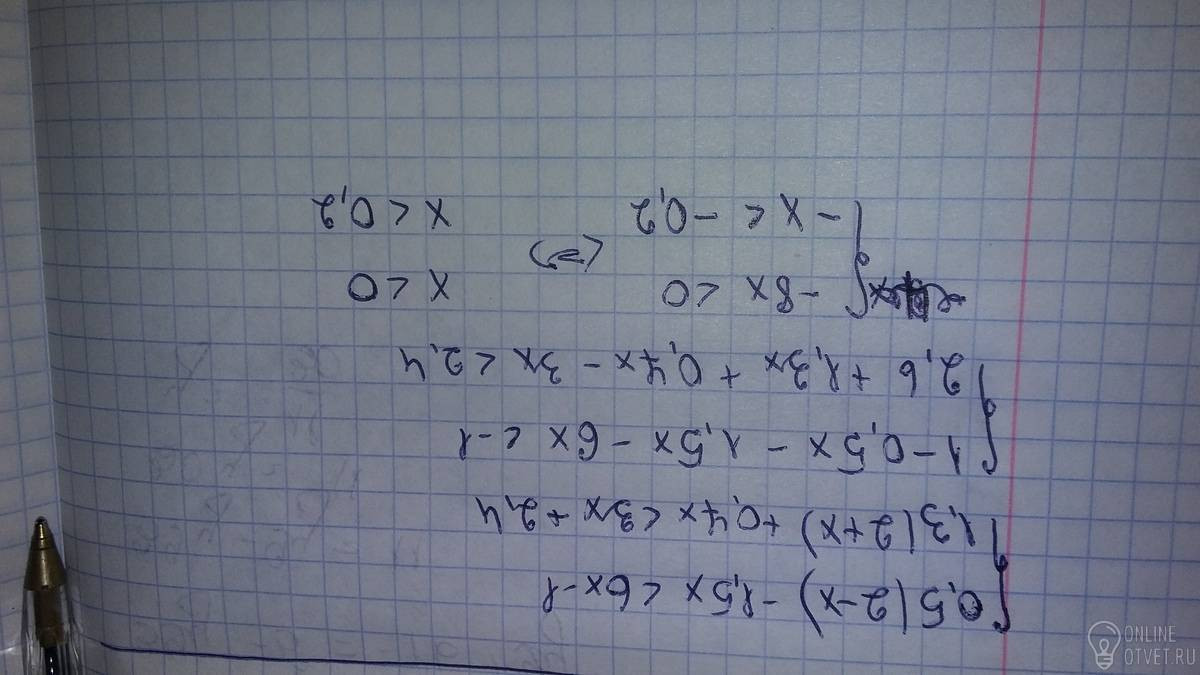 0,5(2-x) -1,5x < 6x-1
1,3(2+x) +0,7x < 3x +2,4
1-0,5x - 1,5x - 6x < -1
2,6 + 1,3x + 0,7x - 3x < 2,4
-8x < 0 x < 0
<=>
-x < -0,2 x < 0,2
ONLINE
OTVET.RU